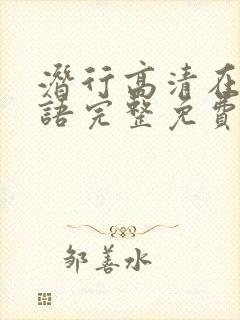 潛行高清在
語完整免費
鄒善水